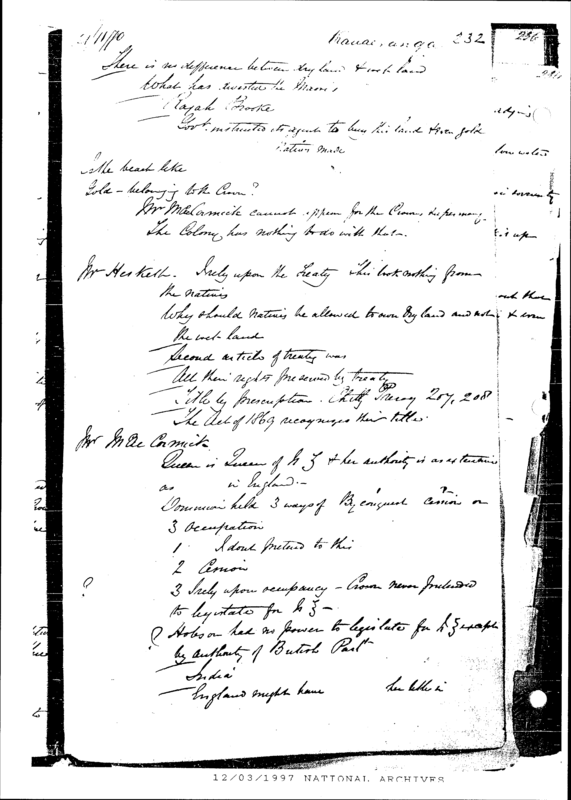 21/11/70 232 236
There is no difference between dry land & wet land
What has divested the Maoris
Rajah Brooke
Govt. instructed its agents to buy this land & even gold
natives made
Is the beach like
Gold - belonging to the Crown?
Mr MacCormick cannot appear for the Crown
The Colony has nothing to do with that.
it up
Mr Hesketh. I rely upon the Treaty This took nothing from
the natives
Why should natives be allowed to own dry land and not
the wet land
Second article of treaty was
All their rights preserved by treaty
Title by prescription. Chitty Prerog 207, 208
The Act of 1869 recognizes their title.
Mr MacCormick
Queen is Queen of N Z & her authority is as extensive
as in England -
Dominion held 3 ways By conquest cession or
3 occupation
1 I dont pretend to this
2 Cession
? 3 I rely upon occupancy - Crown never pretended
to legislate for N Z -
? Hobson had no power to legislate for N Z except
by authority of British Parlt
India
England might have her title in
12/03/1997 NATIONAL ARCHIVES